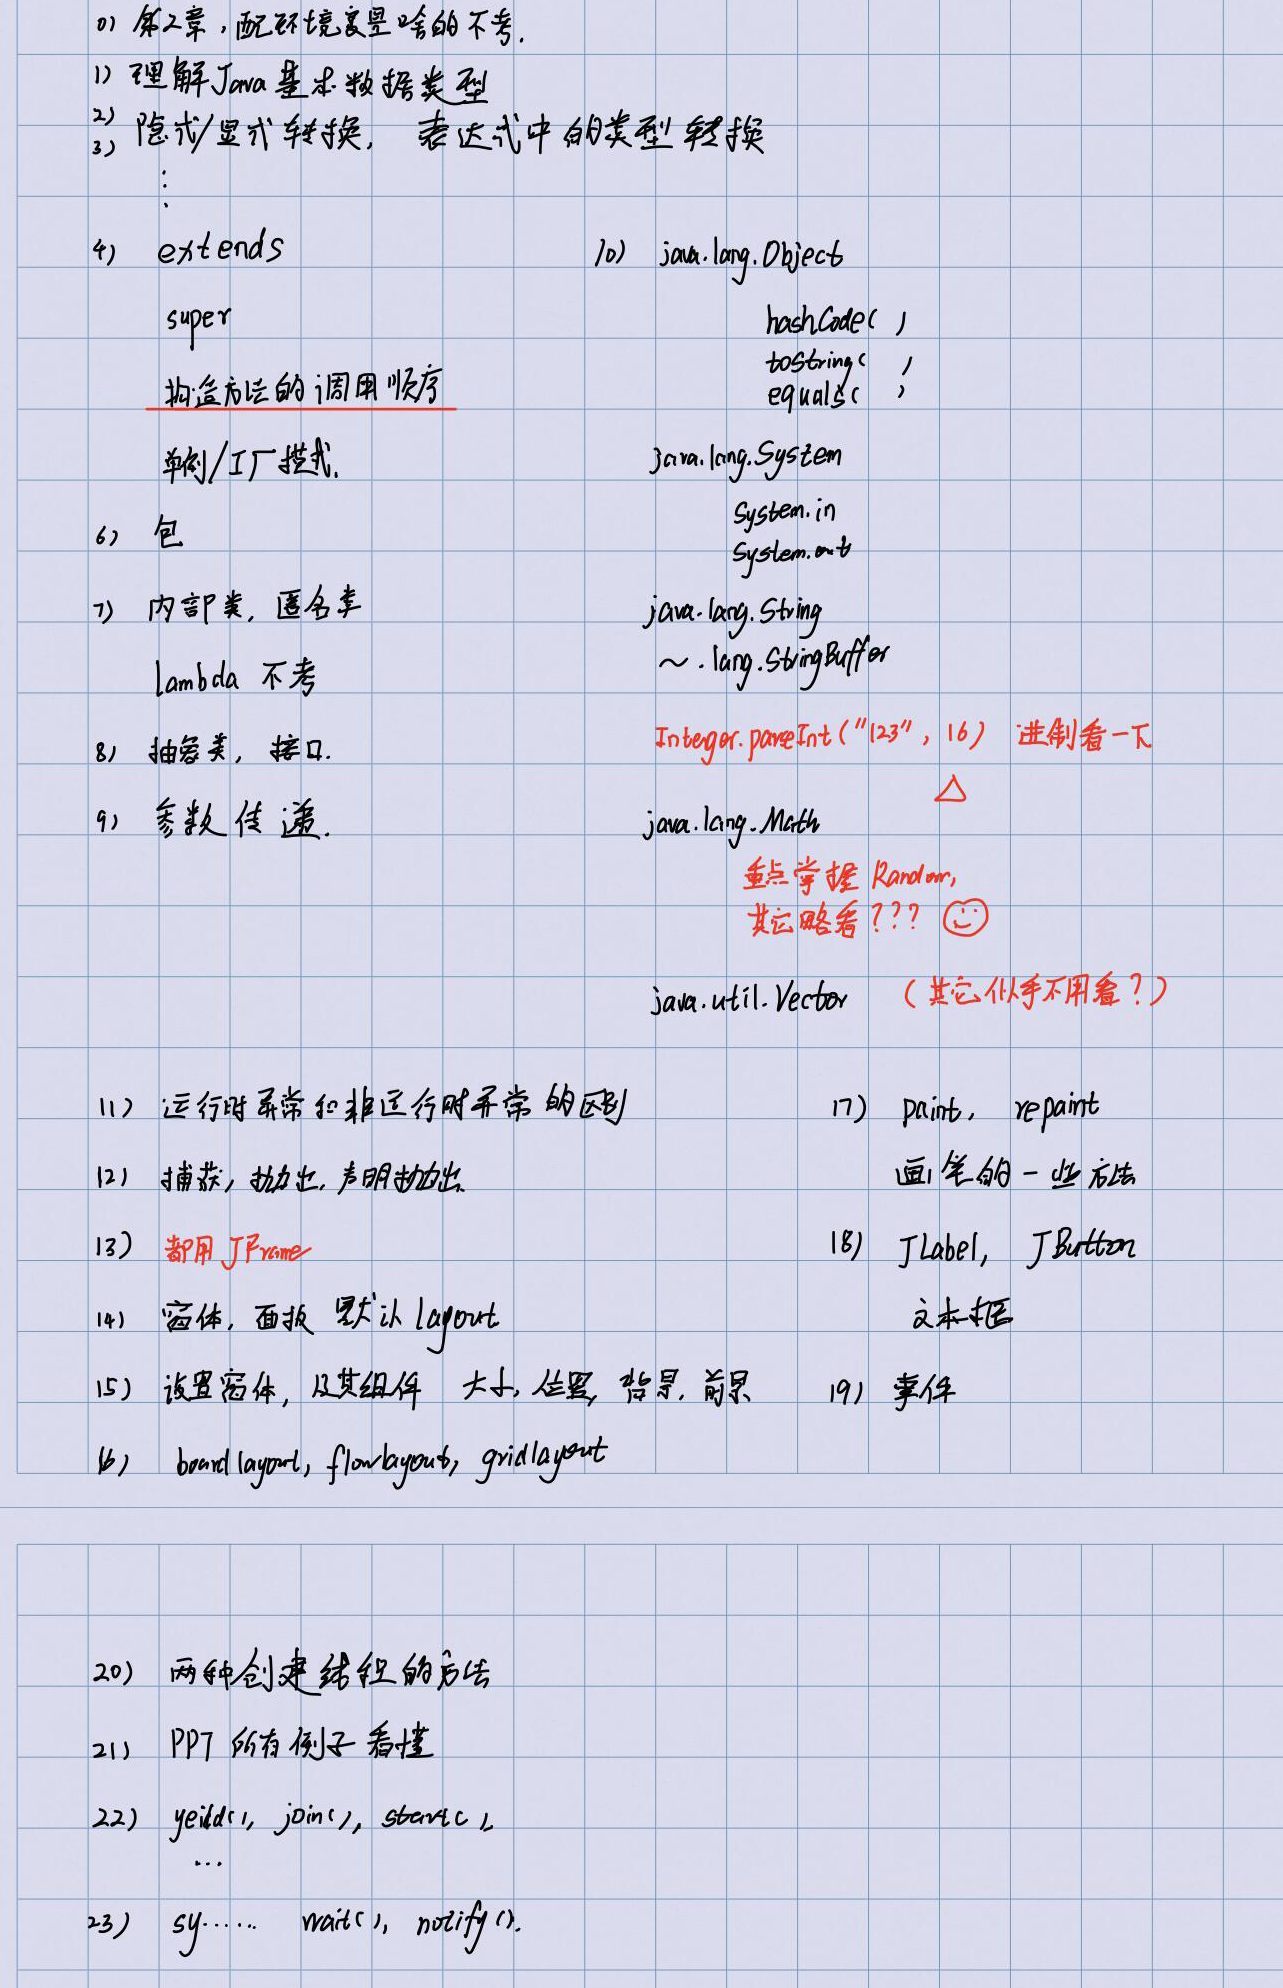 0) 第2章，配环境变量啥的不考.
1) 理解Java基本数据类型
2)
3) 隐式/显式转换， 表达式中的类型转换
⋮
4) extends
super
构造方法的调用顺序
单例/工厂模式.
6) 包
7) 内部类，匿名类
lambda 不考
8) 抽象类，接口.
9) 参数传递.
10) java.lang.Object
hashCode( )
toString( )
equals( )
java.lang.System
System.in
System.out
java.lang.String
~.lang.StringBuffer
Integer.parseInt("123", 16) 进制看一下
△
java.lang.Math
重点掌握 Random,
其它略看???
java.util.Vector （其它似乎不用看?）
11) 运行时异常和非运行时异常的区别
12) 捕获，抛出，声明抛出
13) 都用 JFrame
14) 窗体，面板 默认 layout
15) 设置窗体，及其组件 大小，位置，背景，前景
16) boardlayout, flowlayout, gridlayout
17) paint, repaint
画笔的一些方法
18) JLabel, JButton
文本框
19) 事件
20) 两种创建线程的方法
21) PPT 所有例子看懂
22) yeild(), join(), start(),
...
23) sy...... wait(), notify().